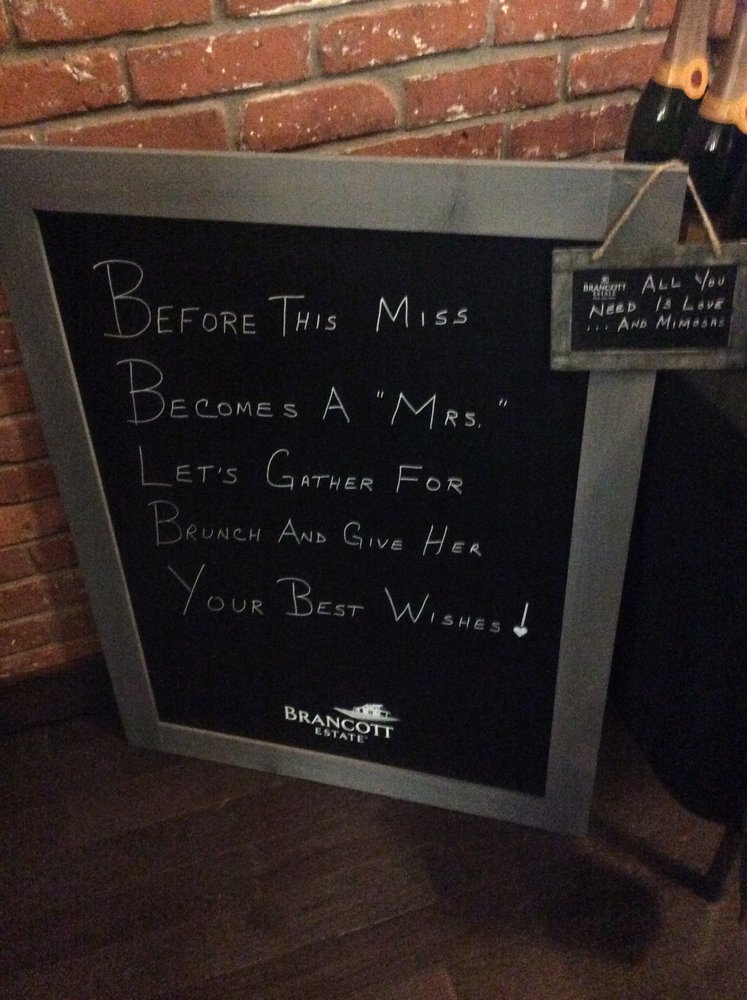 Before This Miss
Becomes A "Mrs."
Let's Gather For
Brunch And Give Her
Your Best Wishes!
BRANCOTT
ESTATE
BRANCOTT
ESTATE
All You
Need Is Love
... And Mimosas